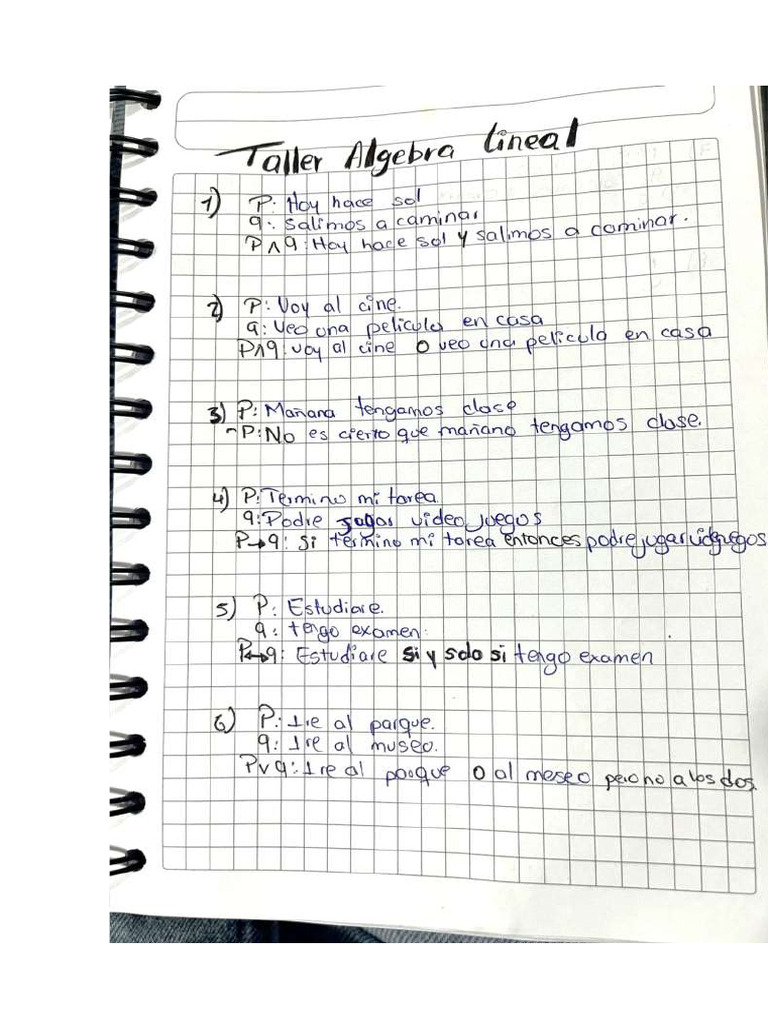 Taller Algebra lineal
1) P: Hoy hace sol
q: Salimos a caminar
P∧q: Hoy hace sol y salimos a caminar.
2) P: Voy al cine.
q: Veo una pelicula en casa
P∧q: voy al cine o veo una pelicula en casa
3) P: Mañana tengamos clase
¬P: No es cierto que mañana tengamos clase.
4) P: Termino mi tarea
q: Podre jugar video juegos
P→q: Si termino mi tarea entonces podre jugar videojuegos
5) P: Estudiare.
q: tengo examen.
P↔q: Estudiare si y solo si tengo examen
6) P: Ire al parque.
q: Ire al museo.
P∨q: Ire al parque o al meseo pero no a los dos.